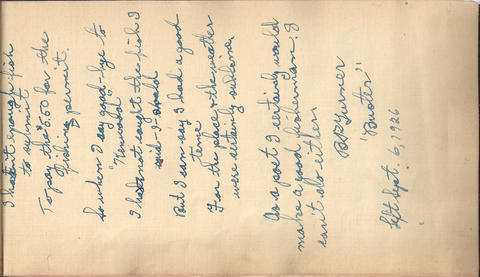 I hadn't enough fish
to submit
To pay the $5.50 for the
fishing permit.
So when I say good-bye to
"Kenwood"
I have not caught the fish I
said I would
But I can say I had a good
time
For the place & the weather
were certainly sublime.
As a poet I certainly would
make a good fisherman: I
can't do either.
B R Turner
"Buster"
Left Sept. 6, 1926